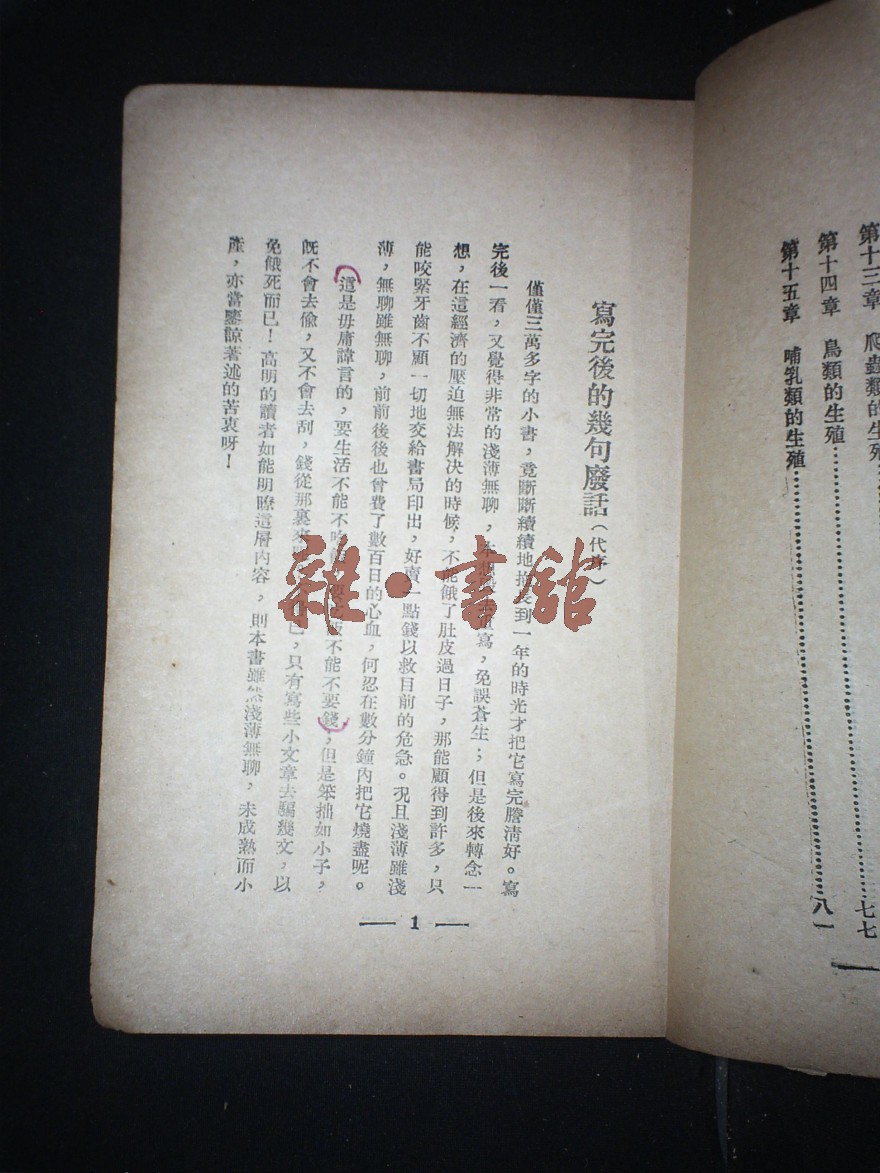 第十三章 爬蟲類的生殖……七七
第十四章 鳥類的生殖……
第十五章 哺乳類的生殖……八一
寫完後的幾句廢話（代序）
僅僅三萬多字的小書，竟斷斷續續地拖長到一年的時光才把它寫完謄清好。寫
完後一看，又覺得非常的淺薄無聊，本想重寫，免誤蒼生；但是後來轉念一
想，在這經濟的壓迫無法解决的時候，不能餓了肚皮過日子，那能顧得到許多，只
能咬緊牙齒不顧一切地交給書局印出，好賣一點錢以救目前的危急。况且淺薄雖淺
薄，無聊雖無聊，前前後後也曾費了數百日的心血，何忍在數分鐘內把它燒盡呢。
這是毋庸諱言的，要生活不能不吃飯，要吃飯不能不要錢，但是笨拙如小子，
旣不會去偸，又不會去刮，錢從那裏來，只有寫些小文章去騙幾文，以
免餓死而已！高明的讀者如能明瞭這層內容，則本書雖然淺薄無聊，未成熟而小
產，亦當鑒諒著述的苦衷呀！
1
雜·書館